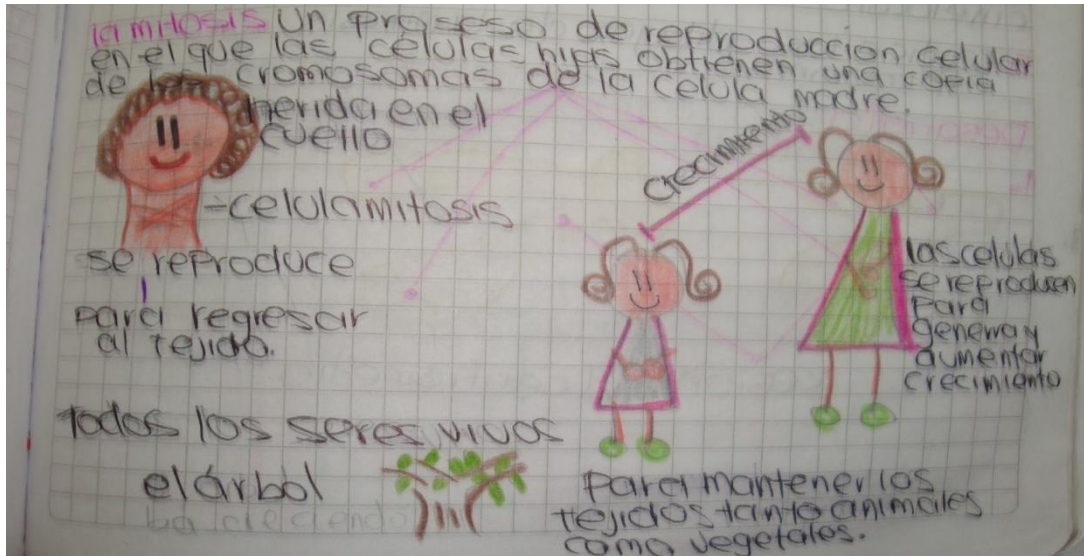 la mitosis un proseso de reproduccion celular
en el que las células hijas obtienen una copia
de los cromosomas de la celula madre.
herida en el
cuello
-celulamitosis
se reproduce
para regresar
al tejido.
crecimiento
las celulas
se reproducen
para
generra y
aumentar
crecimiento
Todos los seres vivos
el árbol
para mantener los
tejidos tanto animales
como vegetales.